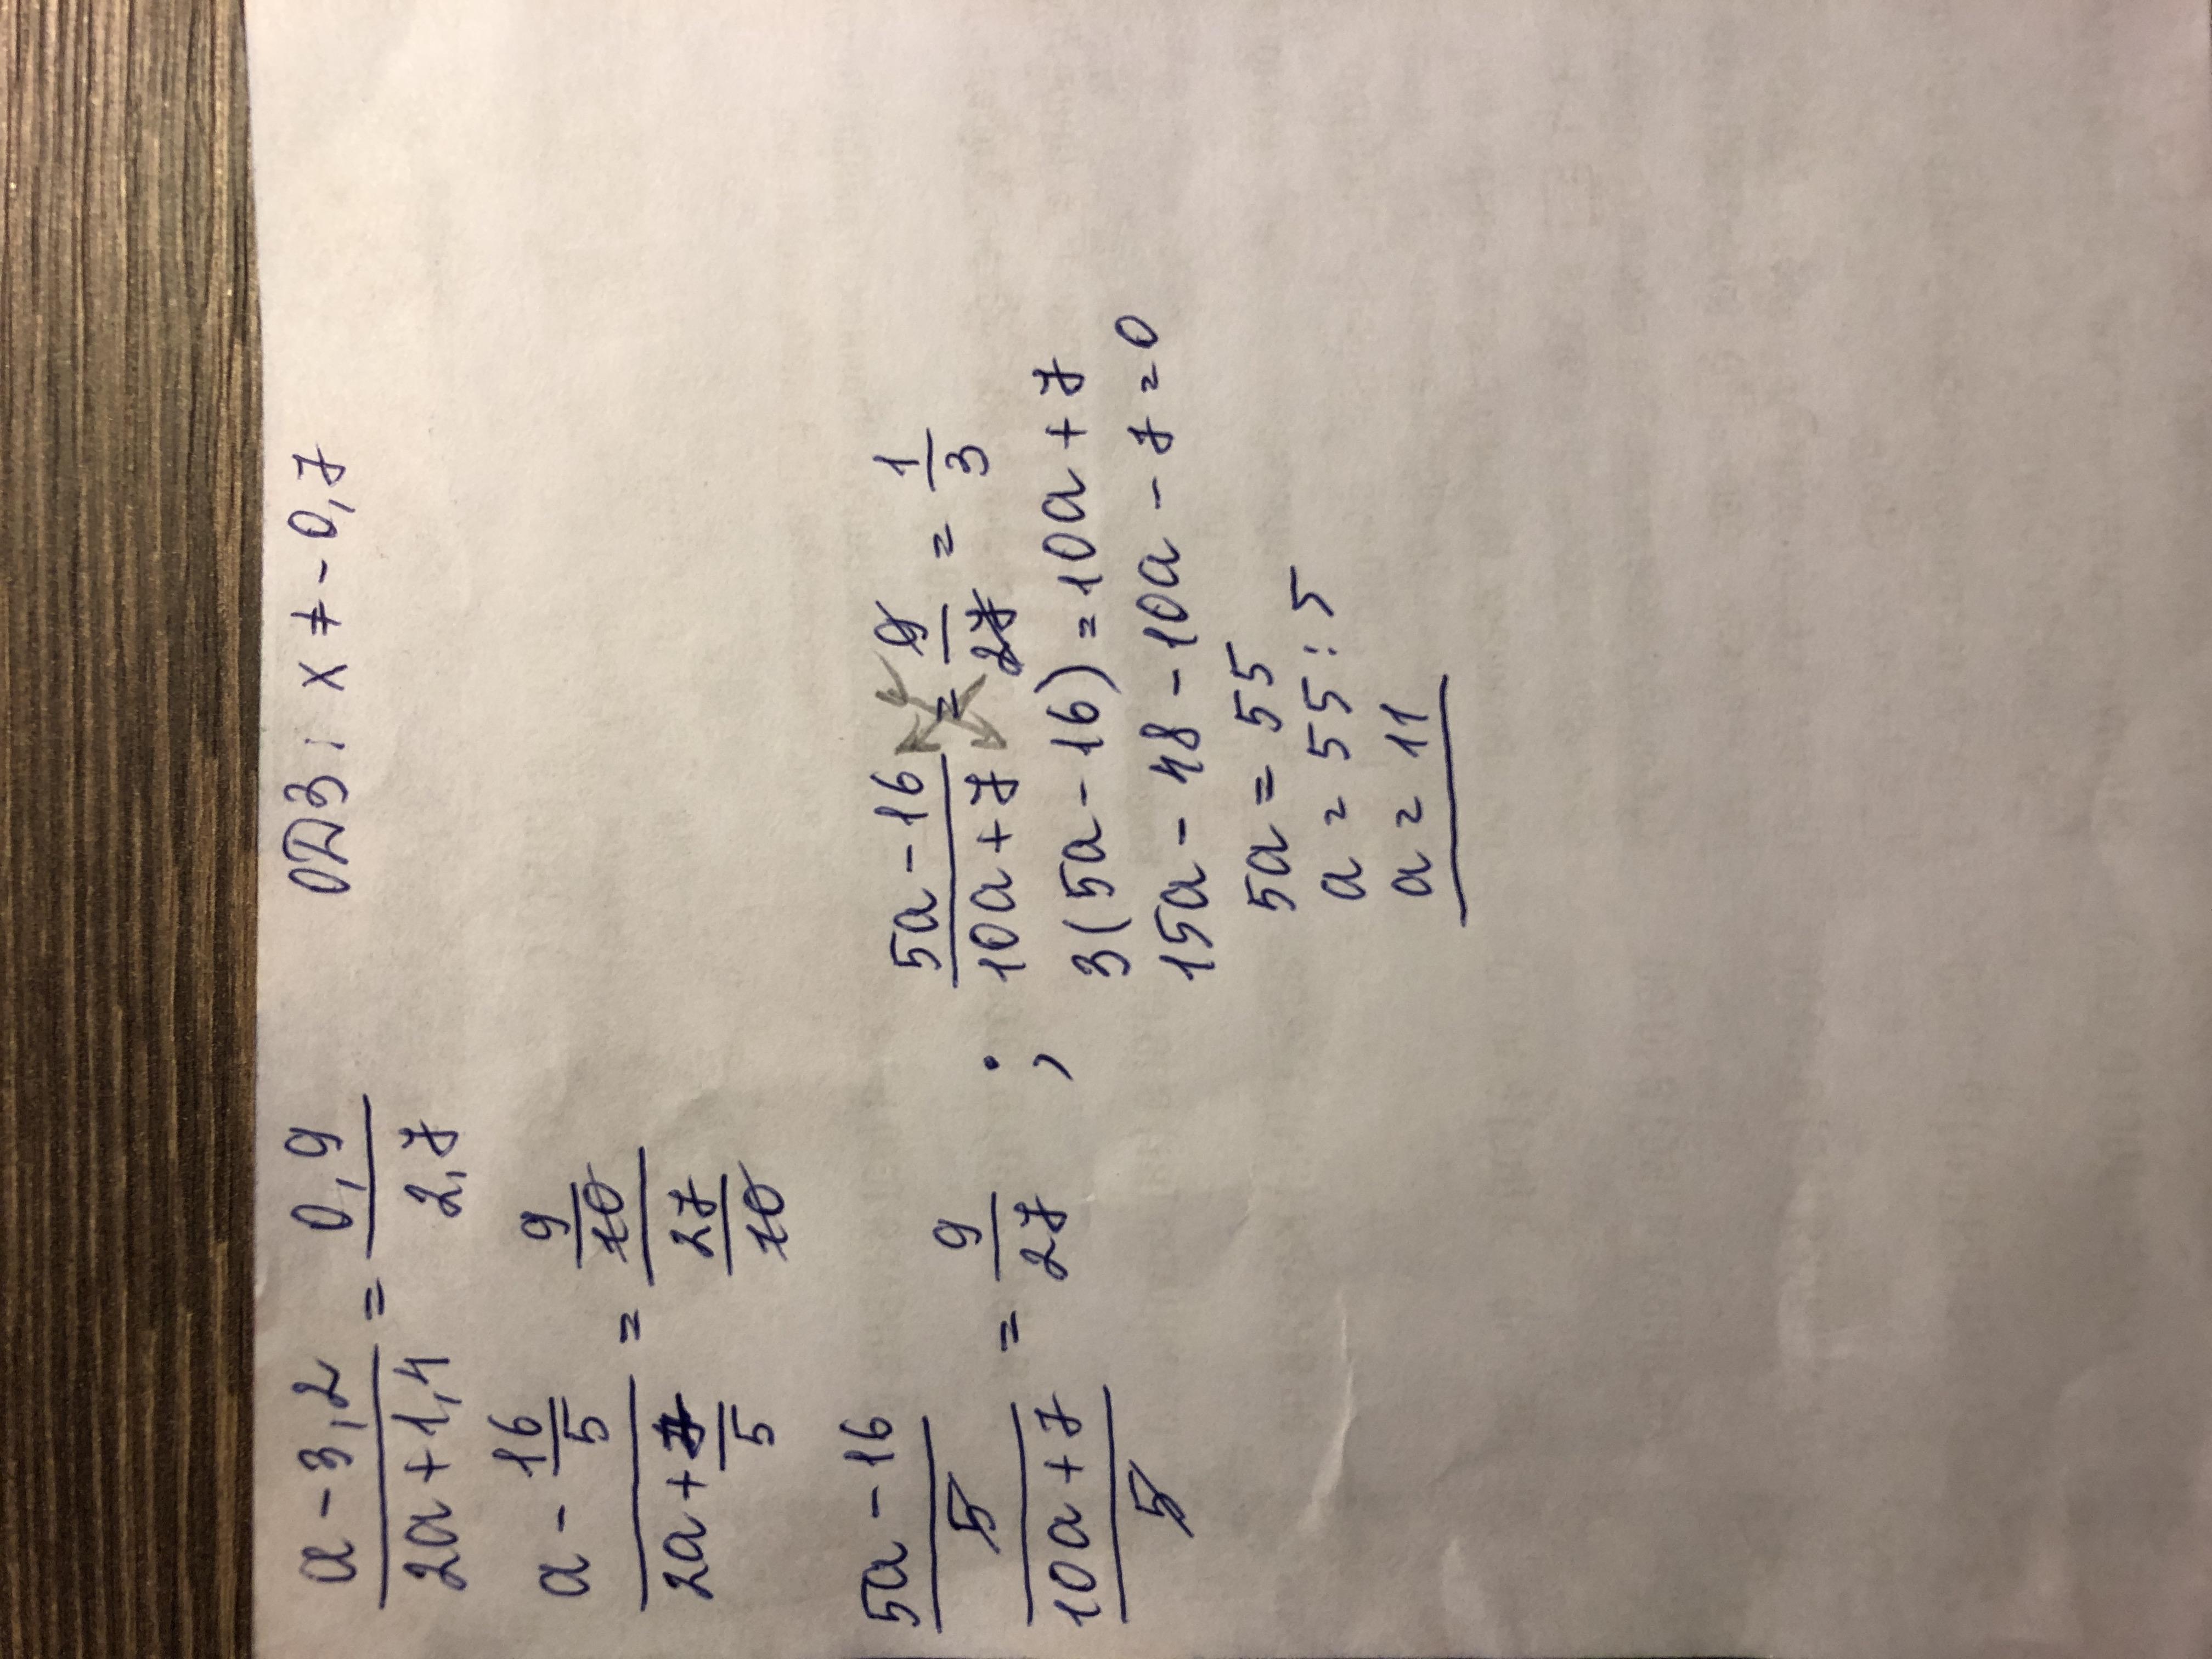 a - 3,2 / 2a + 1,4 = 0,9 / 2,7   ОДЗ: x ≠ -0,7
a - 16/5 / 2a + 7/5 = 9/10 / 27/10
5a - 16 / 5 / 10a + 7 / 5 = 9/27 ; 5a - 16 / 10a + 7 = 9/27 = 1/3
3(5a - 16) = 10a + 7
15a - 48 - 10a - 7 = 0
5a = 55
a = 55 : 5
a = 11